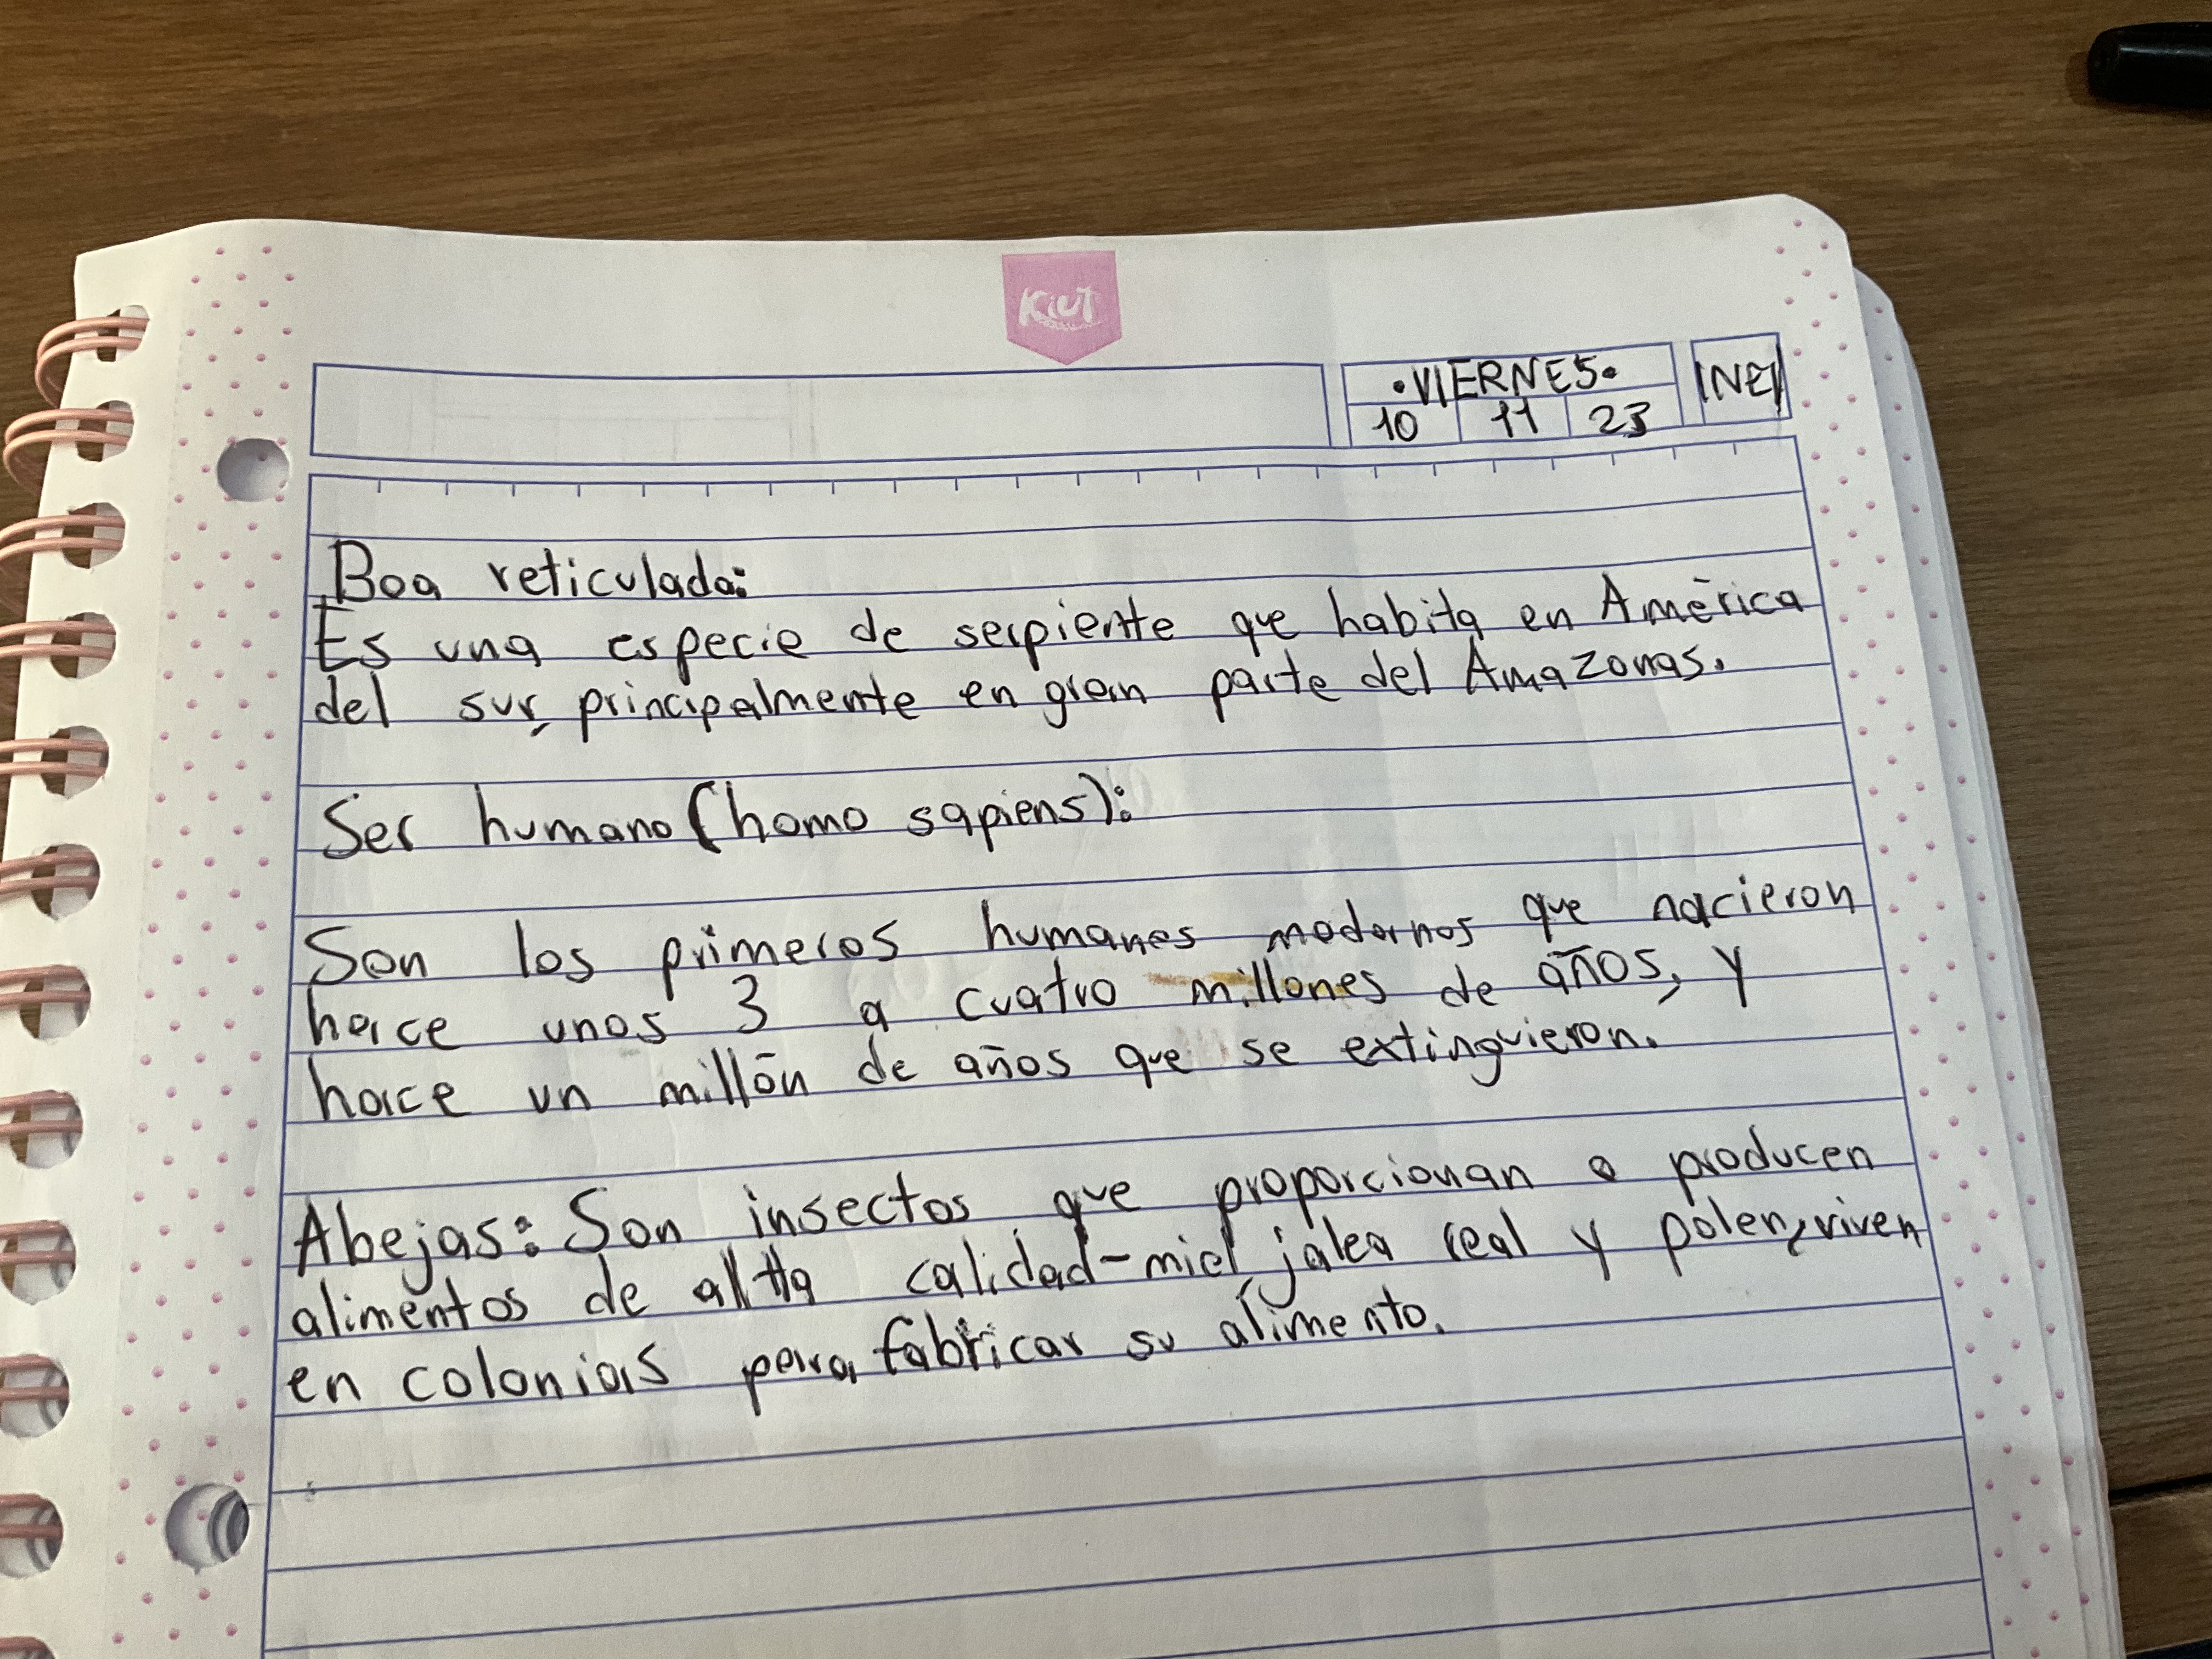 Kiut
•VIERNES•
10 11 23
INEI
Boa reticulada:
Es una especie de serpiente que habita en América
del sur, principalmente en gran parte del Amazonas.
Ser humano (homo sapiens):
Son los primeros humanos modernos que nacieron
hace unos 3 a cuatro millones de años, y
hace un millón de años que se extinguieron.
Abejas: Son insectos que proporcionan o producen
alimentos de alta calidad-miel, jalea real y polen, viven
en colonias para fabricar su alimento.